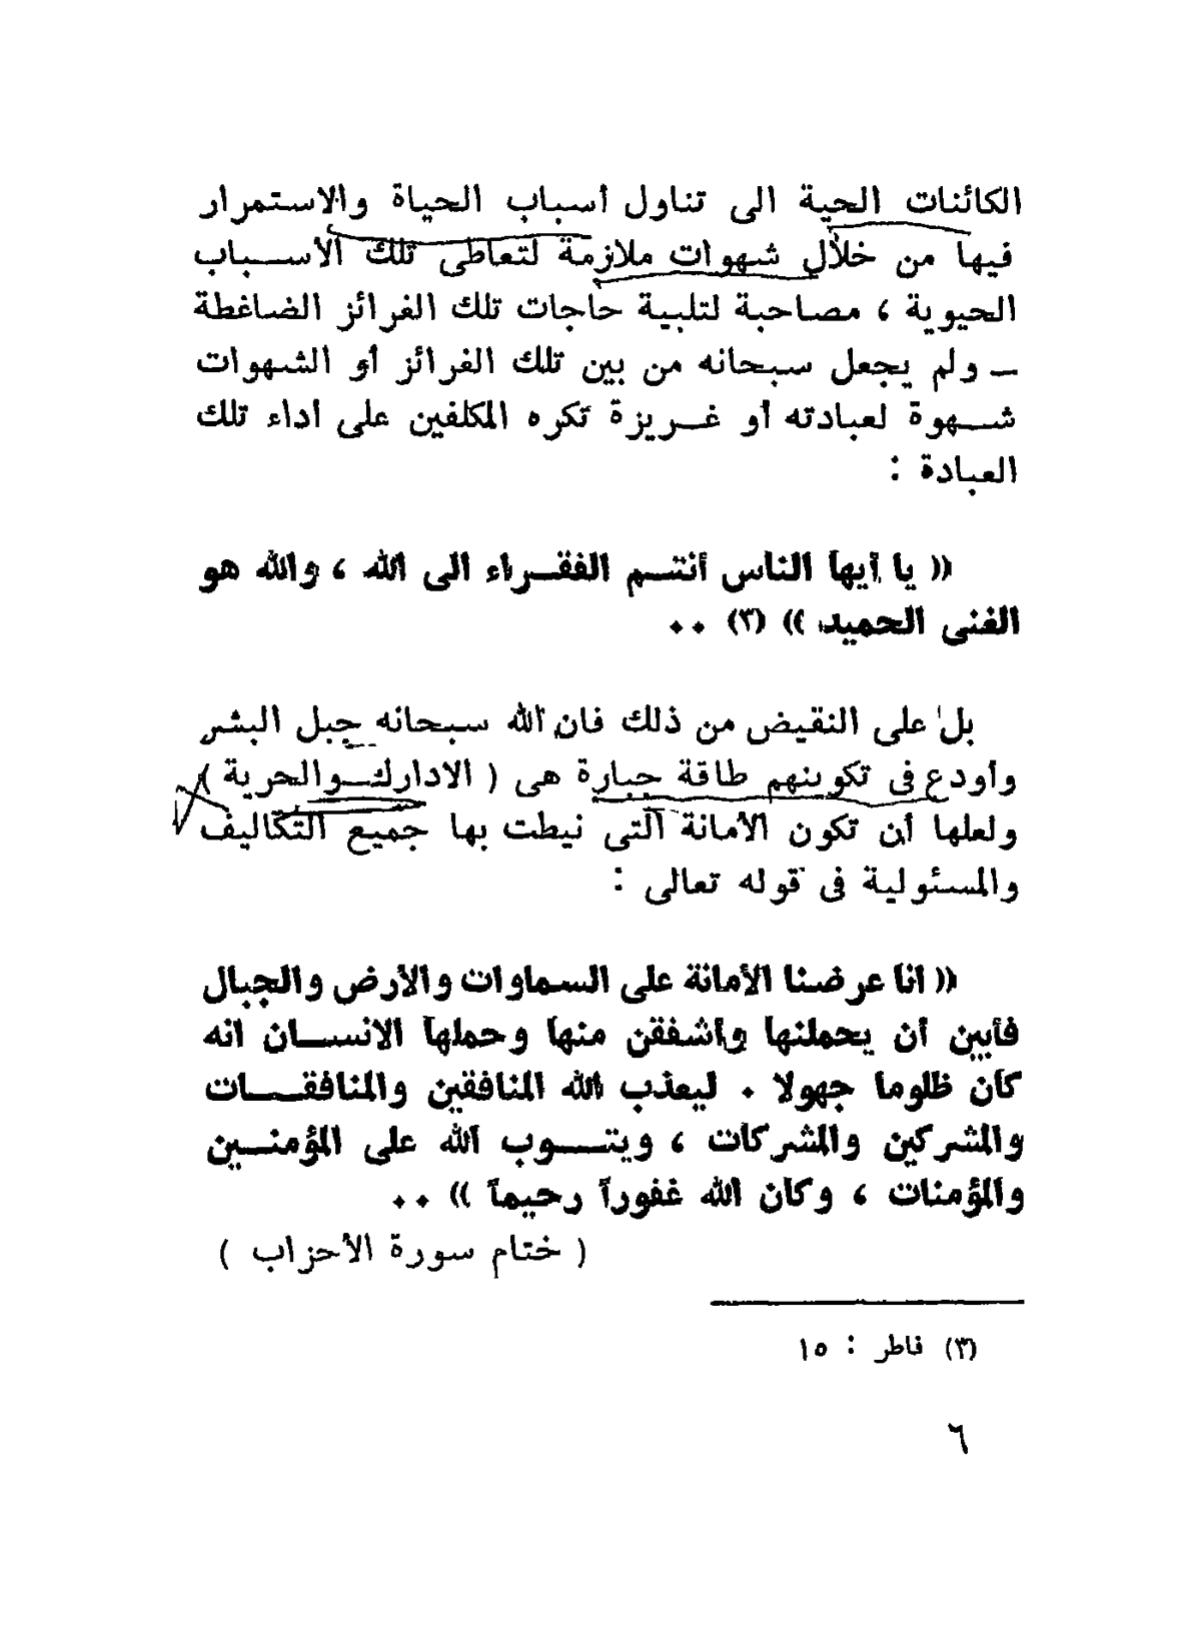 الكائنات الحية الى تناول أسباب الحياة والاستمرار
فيها من خلال شهوات ملازمة لتعاطى تلك الأسباب
الحيوية ، مصاحبة لتلبية حاجات تلك الغرائز الضاغطة
ـ ولم يجعل سبحانه من بين تلك الغرائز أو الشهوات
شهوة لعبادته أو غريزة تكره المكلفين على أداء تلك
العبادة :
(( يا أيها الناس أنتم الفقراء الى الله ، والله هو
الغنى الحميد )) (٣) ٠٠
بل على النقيض من ذلك فان الله سبحانه جبل البشر
وأودع فى تكوينهم طاقة جبارة هى ( الادارك والحرية )
ولعلها أن تكون الأمانة التى نيطت بها جميع التكاليف
والمسئولية فى قوله تعالى :
(( انا عرضنا الأمانة على السماوات والأرض والجبال
فأبين أن يحملنها وأشفقن منها وحملها الانسان انه
كان ظلوما جهولا ٠ ليعذب الله المنافقين والمنافقات
والمشركين والمشركات ، ويتوب الله على المؤمنين
والمؤمنات ، وكان الله غفوراً رحيماً )) ٠٠
( ختام سورة الأحزاب )
(٣) فاطر : ١٥
٦